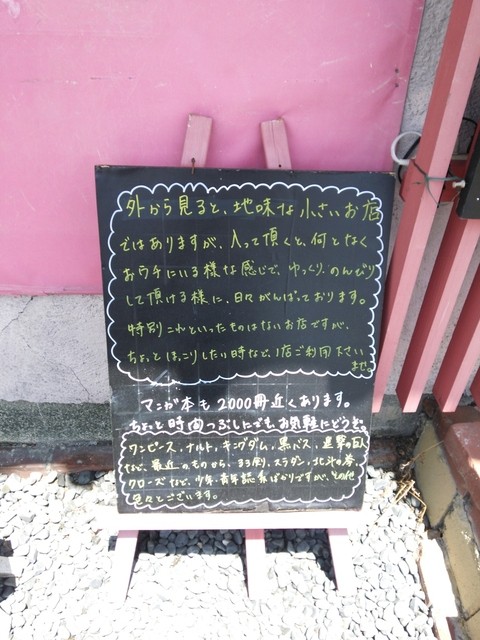 外から見ると、地味な小さいお店
ではありますが、入って頂くと、何となく
おウチにいる様な感じで、ゆっくり、のんびり
して頂ける様に、日々がんばっております。
特別これといったものはないお店ですが、
ちょっとほっこりしたい時など、1店ご利用下さい
ませ。
マンガ本も2000冊近くあります。
ちょっと時間つぶしにでもお気軽にどうぞ。
ワンピース、ナルト、キングダム、黒バス、進撃の巨人
など、最近のものから、スラダン、北斗の拳、
クローズなど、少年、青年誌系ばかりですが、その他
色々とございます。